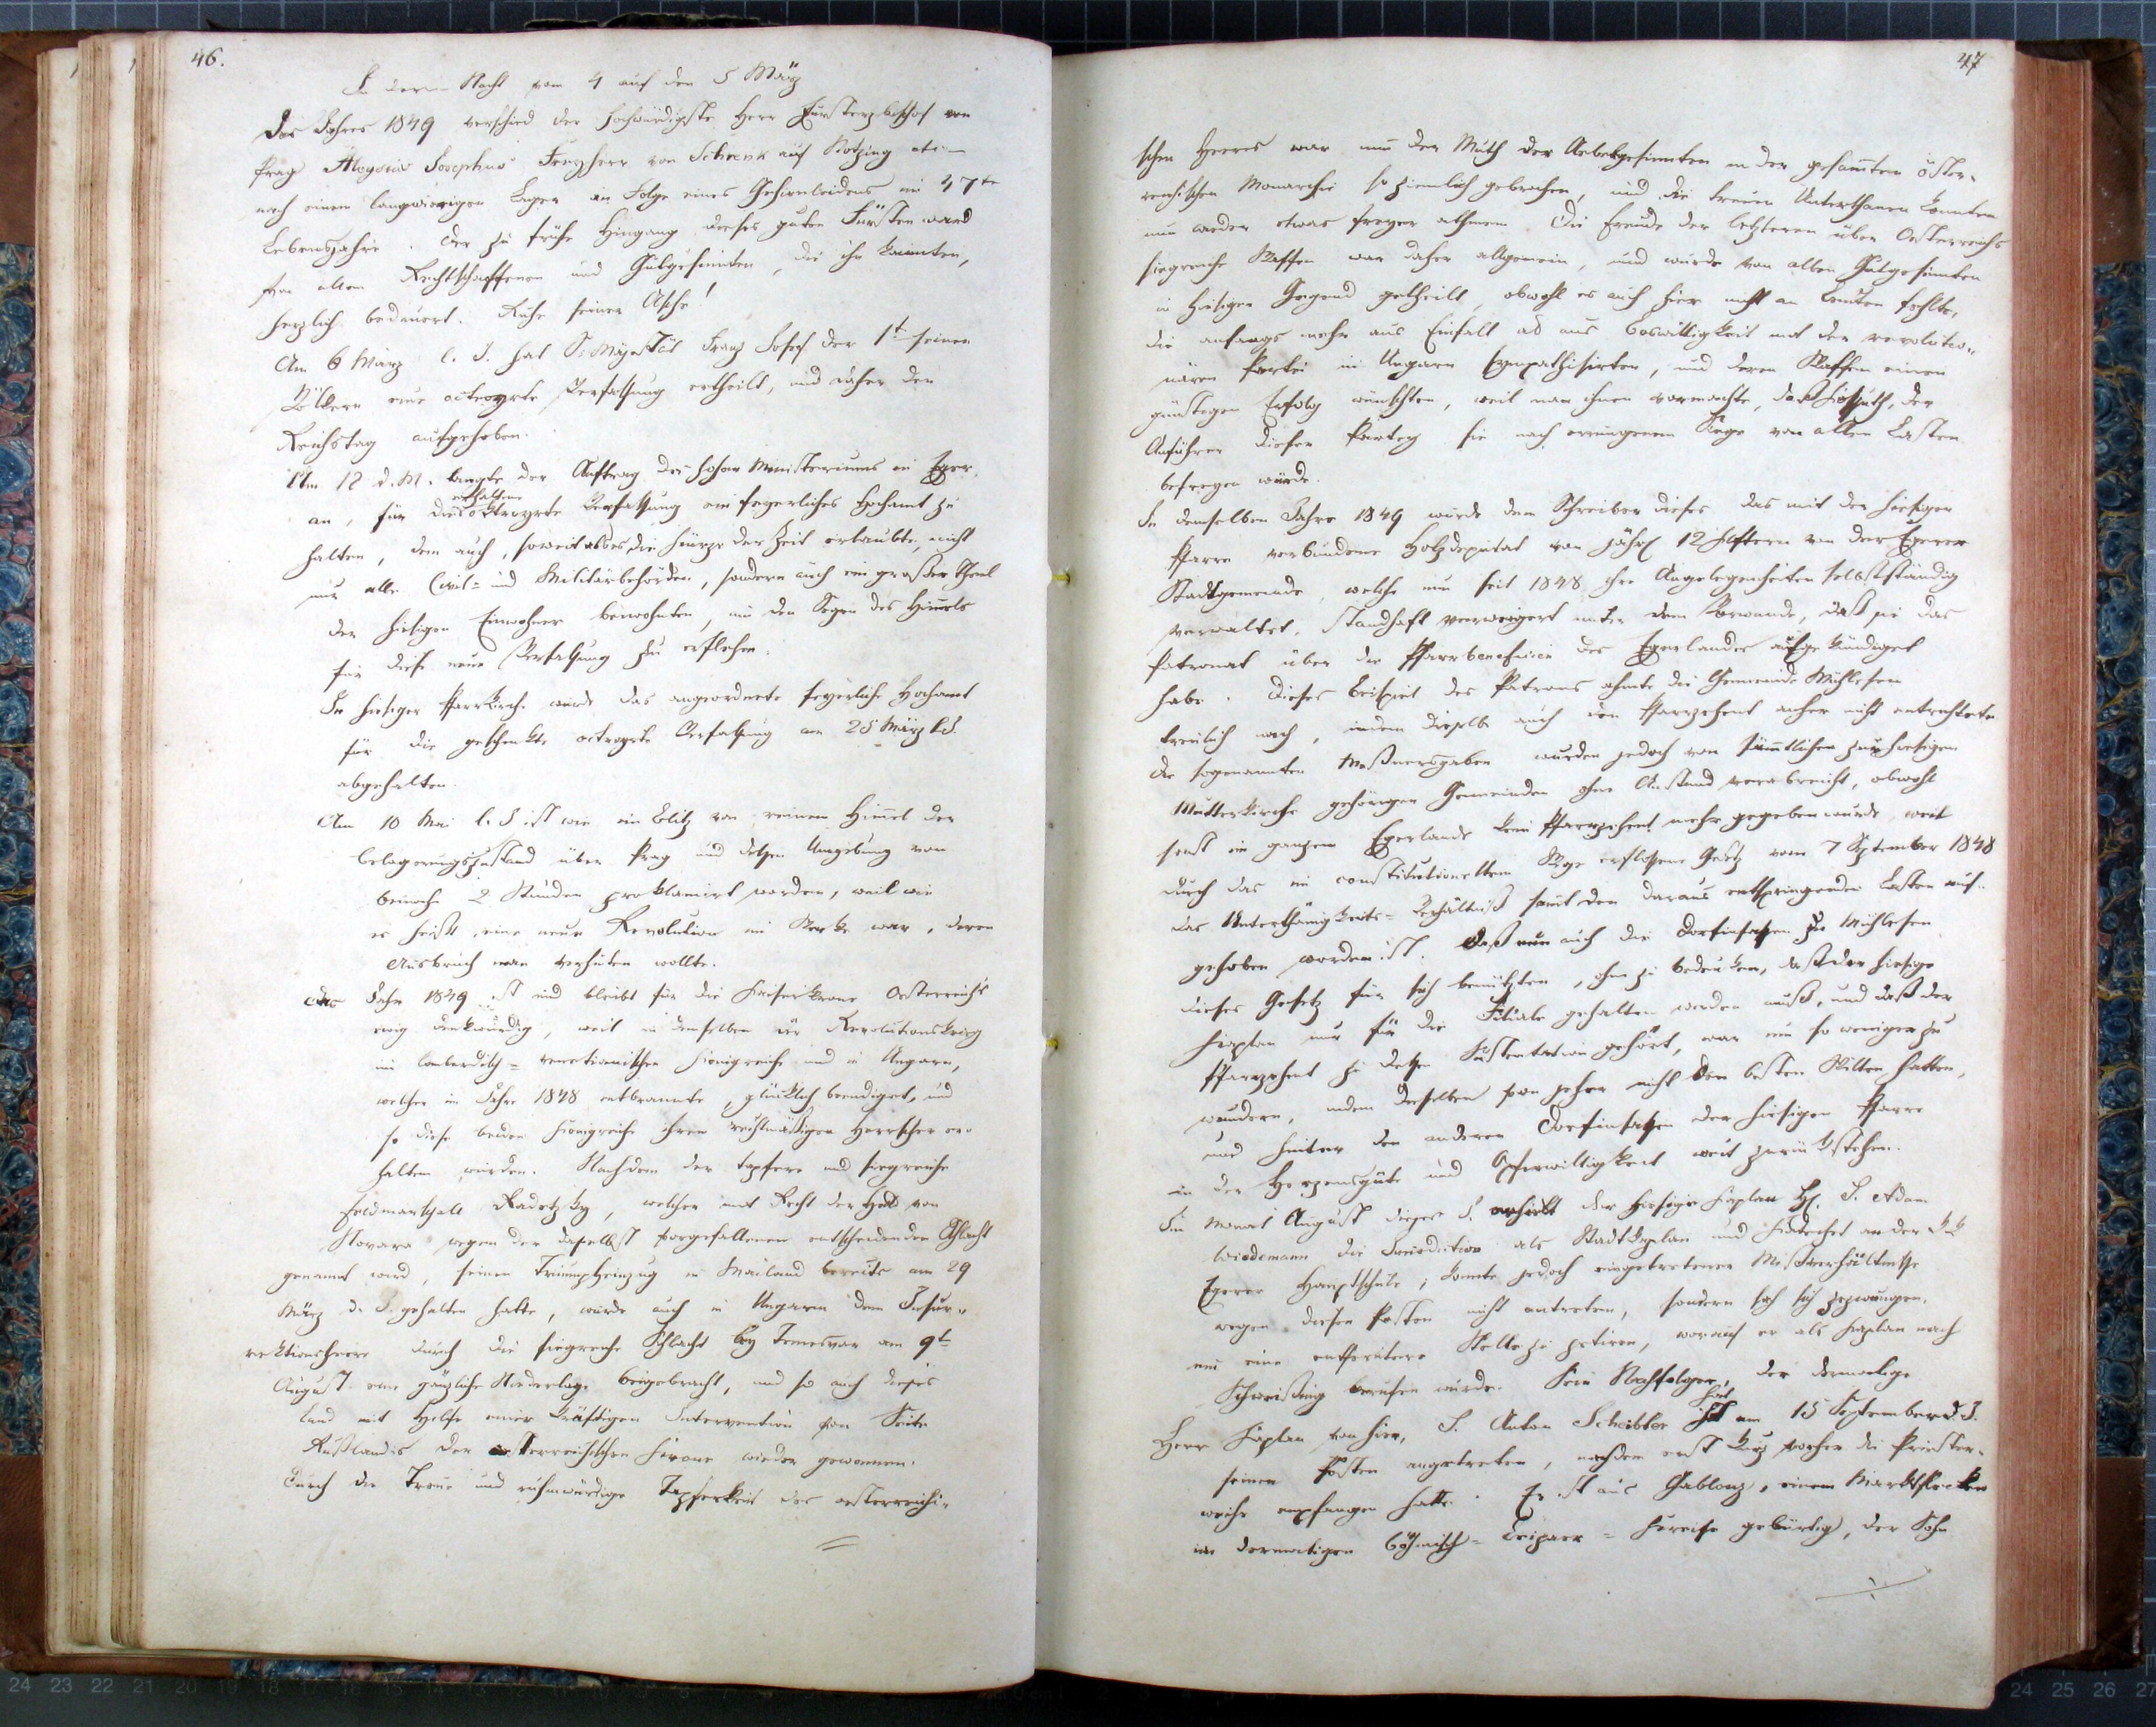 46.
In der Nacht vom 4 auf den 5 März
des Jahres 1849 verschied der hochwürdigste Herr Fürsterzbischof von
Prag Aloysius Josephus Freyherr von Schrenk auf Notzing etc.
nach einem langwierigen Lager in Folge eines Gehirnleidens im 47te
Lebensjahre. Der zu frühe Hingang dieses guten Fürsten ward
von allen Rechtschaffenen und Gutgesinnten, die ihn kannten,
herzlich bedauert. Ruhe seiner Asche!
Am 6 März l. J. hat Se Majestät Franz Josef der 1te seinen
Völkern eine octroyrte Verfassung ertheilt, und daher den
Reichstag aufgehoben.
Am 12 d. M. langte der Auftrag des hohen Ministeriums in Eger
an, für die erhaltene oktroyrte Verfassung ein feyerliches Hochamt zu
halten, dem auch, soweit es die Kürze der Zeit erlaubte, nicht
nur alle Civil- und Militärbehörden, sondern auch ein großer Theil
der hiesigen Einwohner beiwohnten, um den Segen des Himmels
für diese neue Verfassung zu erflehen.
In hiesiger Pfarrkirche wurde das angeordnete feyerliche Hochamt
für die geschenkte octroyrte Verfassung am 25 März l. J.
abgehalten.
Am 10 Mai l. J. ist wie ein Blitz von reinem Himmel der
Belagerungszustand über Prag und dessen Umgebung von
beinahe 2 Stunden proklamirt worden, weil wie
es heißt, eine neue Revolution im Werke war, deren
Ausbruch man verhüten wollte.
Das Jahr 1849 ist und bleibt für die Kaiserkrone Oesterreichs
ewig denkwürdig, weil in demselben der Revolutionskrieg
im lombardisch-venetianischen Königreiche und in Ungarn,
welcher im Jahre 1848 entbrannte, glücklich beendiget, und
so diese beiden Königreiche ihrem rechtmäßigen Herrscher er-
halten wurden. Nachdem der tapfere und siegreiche
Feldmarschall Radetzky, welcher mit Recht der Held von
Novara wegen der daselbst vorgefallenen entscheidenden Schlacht
genannt wird, seinen Triumpheinzug in Mailand bereits am 29
März d. J. gehalten hatte, wurde auch in Ungarn dem Insur-
rektionsheere durch die siegreiche Schlacht bey Temesvar am 9t
August eine gänzliche Niederlage beigebracht, und so auch dieses
Land mit Hilfe einer kräftigen Intervention von Seite
Rußlands der österreichischen Krone wieder gewonnen.
Durch die Treue und ruhmwürdige Tapferkeit des oesterreichi-
47
schen Heeres war nun der Muth der Uebelgesinnten in der gesammten öster-
reichischen Monarchie so ziemlich gebrochen, und die treuen Unterthanen konnten
nun wieder etwas freyer athmen. Die Freude der letzteren über Oesterreichs
siegreiche Waffen war daher allgemein, und wurde von allen Gutgesinnten
in hiesiger Gegend getheilt, obwohl es auch hier nicht an Leuten fehlte,
die anfangs mehr aus Einfalt als aus Böswilligkeit mit der revolutio-
nären Partei in Ungarn sympathisirten, und deren Waffen einen
günstigen Erfolg wünschten, weil man ihnen vormachte, daß Koßuth, der
Anführer dieser Partey sie nach errungenem Siege von allen Lasten
befreyen würde.
In demselben Jahre 1849 wurde dem Schreiber dieses das mit der hiesigen
Pfarre verbundene Holzdeputat von jährl. 12 Klaftern von der Egerer
Stadtgemeinde, welche nun seit 1848 ihre Angelegenheiten selbstständig
verwaltet, standhaft verweigert unter dem Vorwande, daß sie das
Patronat über die Pfarrbeneficien des Egerlandes aufgekündiget
habe. Dieses Beispiel des Patrons ahmte die Gemeinde Mühlessen
treulich nach, indem dieselbe auch den Pfarrzehent anher nicht entrichtete
die sogenannten Meßnersgaben wurden jedoch von sämmtlichen zur hiesigen
Mutterkirche gehörigen Gemeinden ohne Anstand verabreicht, obwohl
sonst im ganzen Egerlande kein Pfarrzehent mehr gegeben wurde, weil
durch das im constitutionellem Wege erflossene Gesetz vom 7 September 1848
das Unterthänigkeits-Verhältniß sammt den daraus entspringenden Lasten auf-
gehoben worden ist. Daß nun auch die Dorfinsassen zu Mühlessen
dieses Gesetz für sich benützten, ohne zu bedenken, daß der hiesige
Kaplan nur für die Filiale gehalten werden muß, und daß der
Pfarrzehent zu dessen Sustentation gehört, war um so weniger zu
wundern, indem dieselben von jeher nicht den besten Willen hatten,
und hinter den anderen Dorfinsassen der hiesigen Pfarre
in der Herzensgüte und Opferwilligkeit weit zurückstehen.
Im Monat August dieses J. erhielt der hiesige Kaplan H. P. Adam
Wiedemann die Jurisdiction als Stadtkaplan und Katechet an der k. k.
Egerer Hauptschule; konnte jedoch eingetretener Mißverhältnisse
wegen diesen Posten nicht antreten, sondern sah sich gezwungen,
um eine entferntere Stelle zu petiren, worauf er als Kaplan nach
Schweißing berufen wurde. Sein Nachfolger, der dermalige
Herr Kaplan von hier, P. Anton Scheibler hat am 15 September d. J.
seinen Posten angetreten, nachdem er erst kurz vorher die Priester-
weihe empfangen hatte. Er ist aus Gablonz, einem Marktflecken
im dermaligen Böhmisch-Leipaer-Kreise gebürtig, der Sohn